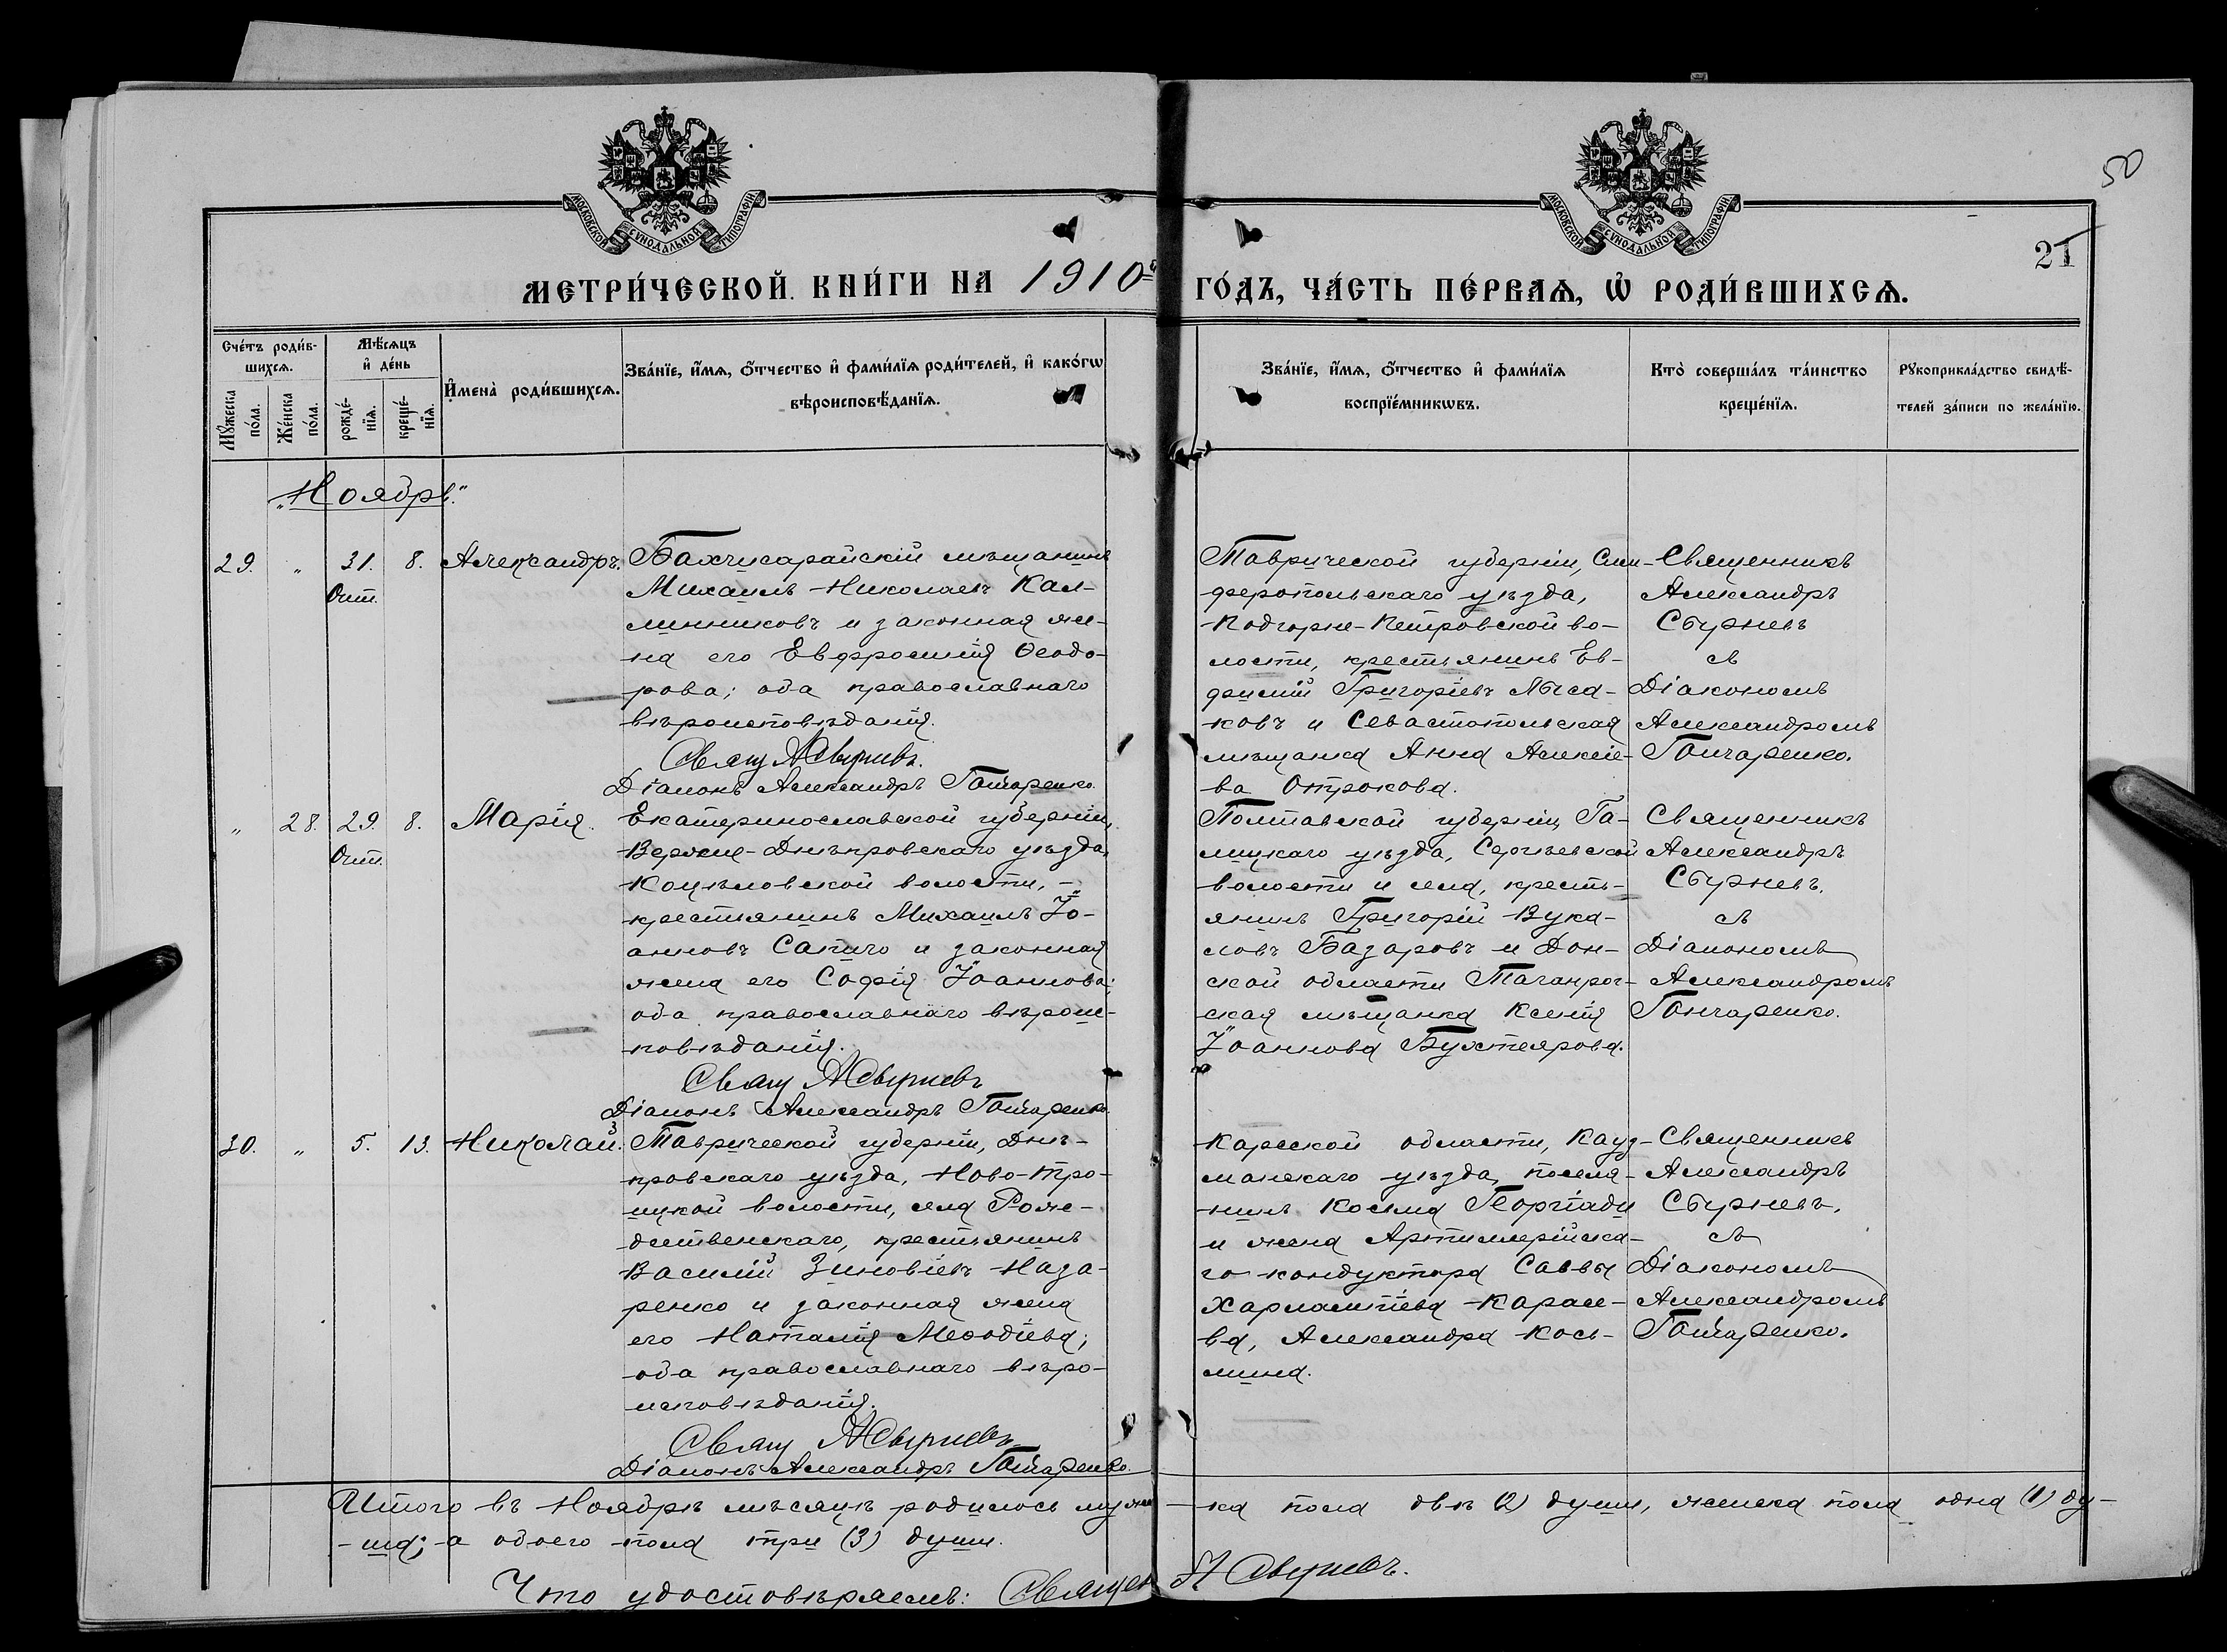 50
21
МОСКОВСКОЙ СѴНОДАЛЬНОЙ ТИПОГРАФІИ
МОСКОВСКОЙ СѴНОДАЛЬНОЙ ТИПОГРАФІИ
МЕТРИ́ЧЕСКОЙ КНИ́ГИ НА 1910й ГО́ДЪ, ЧА́СТЬ ПЕ́РВАѦ, Ѡ҆ РОДИ́ВШИХСѦ.
Сче́тъ роди́в-
шихсѧ.
Мꙋ́жеска по́ла.
Же́нска по́ла.
Мѣ́сѧцъ
и҆ де́нь
рожде́-
нїѧ.
креще́-
нїѧ.
И҆мена̀ роди́вшихсѧ.
Зва́нїе, и҆́мѧ, ѻ҆́тчество и҆ фами́лїѧ роди́телей, и҆ како́гѡ
вѣроисповѣ́данїѧ.
Зва́нїе, и҆́мѧ, ѻ҆́тчество и҆ фами́лїѧ
воспрїе́мникѡвъ.
Кто̀ соверша́лъ та́инство
креще́нїѧ.
Рꙋкоприкла́дство свидѣ́-
телей за́писи по жела́нїю.
„Ноябрь.“
29. „ 31. 8. Александръ.
Окт.
Бахчисарайскій мѣщанинъ
Михаилъ Николаевъ Кал-
линниковъ и законная же-
на его Евфросинія Ѳеодо-
рова; оба православнаго
вѣроисповѣданія.
Свящ. А Сбырневъ.
Діаконъ Александръ Гончаренко.
Таврической губерніи, Сим-
феропольскаго уѣзда,
Подгорне-Петровской во-
лости, крестьянинъ Ев-
фимій Григоріевъ Лыса-
ковъ и Севастопольская
мѣщанка Анна Алексіе-
ва Отрокова.
Священникъ
Александръ
Сбырневъ
съ
Діакономъ
Александромъ
Гончаренко.
„ 28. 29. 8. Марія.
Окт.
Екатеринославской губерніи,
Верхне-Днѣпровскаго уѣзда,
волости, –
крестьянинъ Михаилъ Іо-
анновъ Сапиго и законная
жена его Софія Іоаннова;
оба православнаго вѣроис-
повѣданія.
Свящ А Сбырневъ
Діаконъ Александръ Гончаренко.
Полтавской губерніи, Га-
дицкаго уѣзда, Сергѣевской
волости и села, кресть-
янинъ Григорій Вука-
ловъ Базаровъ и Дон-
ской области Таганрог-
ская мѣщанка Ксенія
Іоаннова Бухтеярова.
Священникъ
Александръ
Сбырневъ.
съ
Діакономъ
Александромъ
Гончаренко.
30. „ 5. 13. Николай.
Таврической губерніи, Днѣ-
провскаго уѣзда, Ново-Тро-
ицкой волости, села Рож-
дественскаго, крестьянинъ
Василій Зиновіевъ Наза-
ренко и законная жена
его Наталія Меѳодіева;
оба православнаго вѣро-
исповѣданія.
Свящ А Сбырневъ
Діаконъ Александръ Гончаренко.
Карсской области, Кагыз-
манскаго уѣзда, поселя-
нинъ Косма Георгіади
и жена Артиллерійска-
го кондуктора Саввы
Харлампіева Карасе-
ва, Александра Кось-
мина.
Священникъ
Александръ
Сбырневъ.
съ
Діакономъ
Александромъ
Гончаренко.
Итого въ Ноябрѣ мѣсяцѣ родилось мужес-ка пола двѣ (2) души, женска пола одна (1) ду-
-ша; а обоего пола три (3) души.
Что удостовѣряемъ: Священ А Сбырневъ.